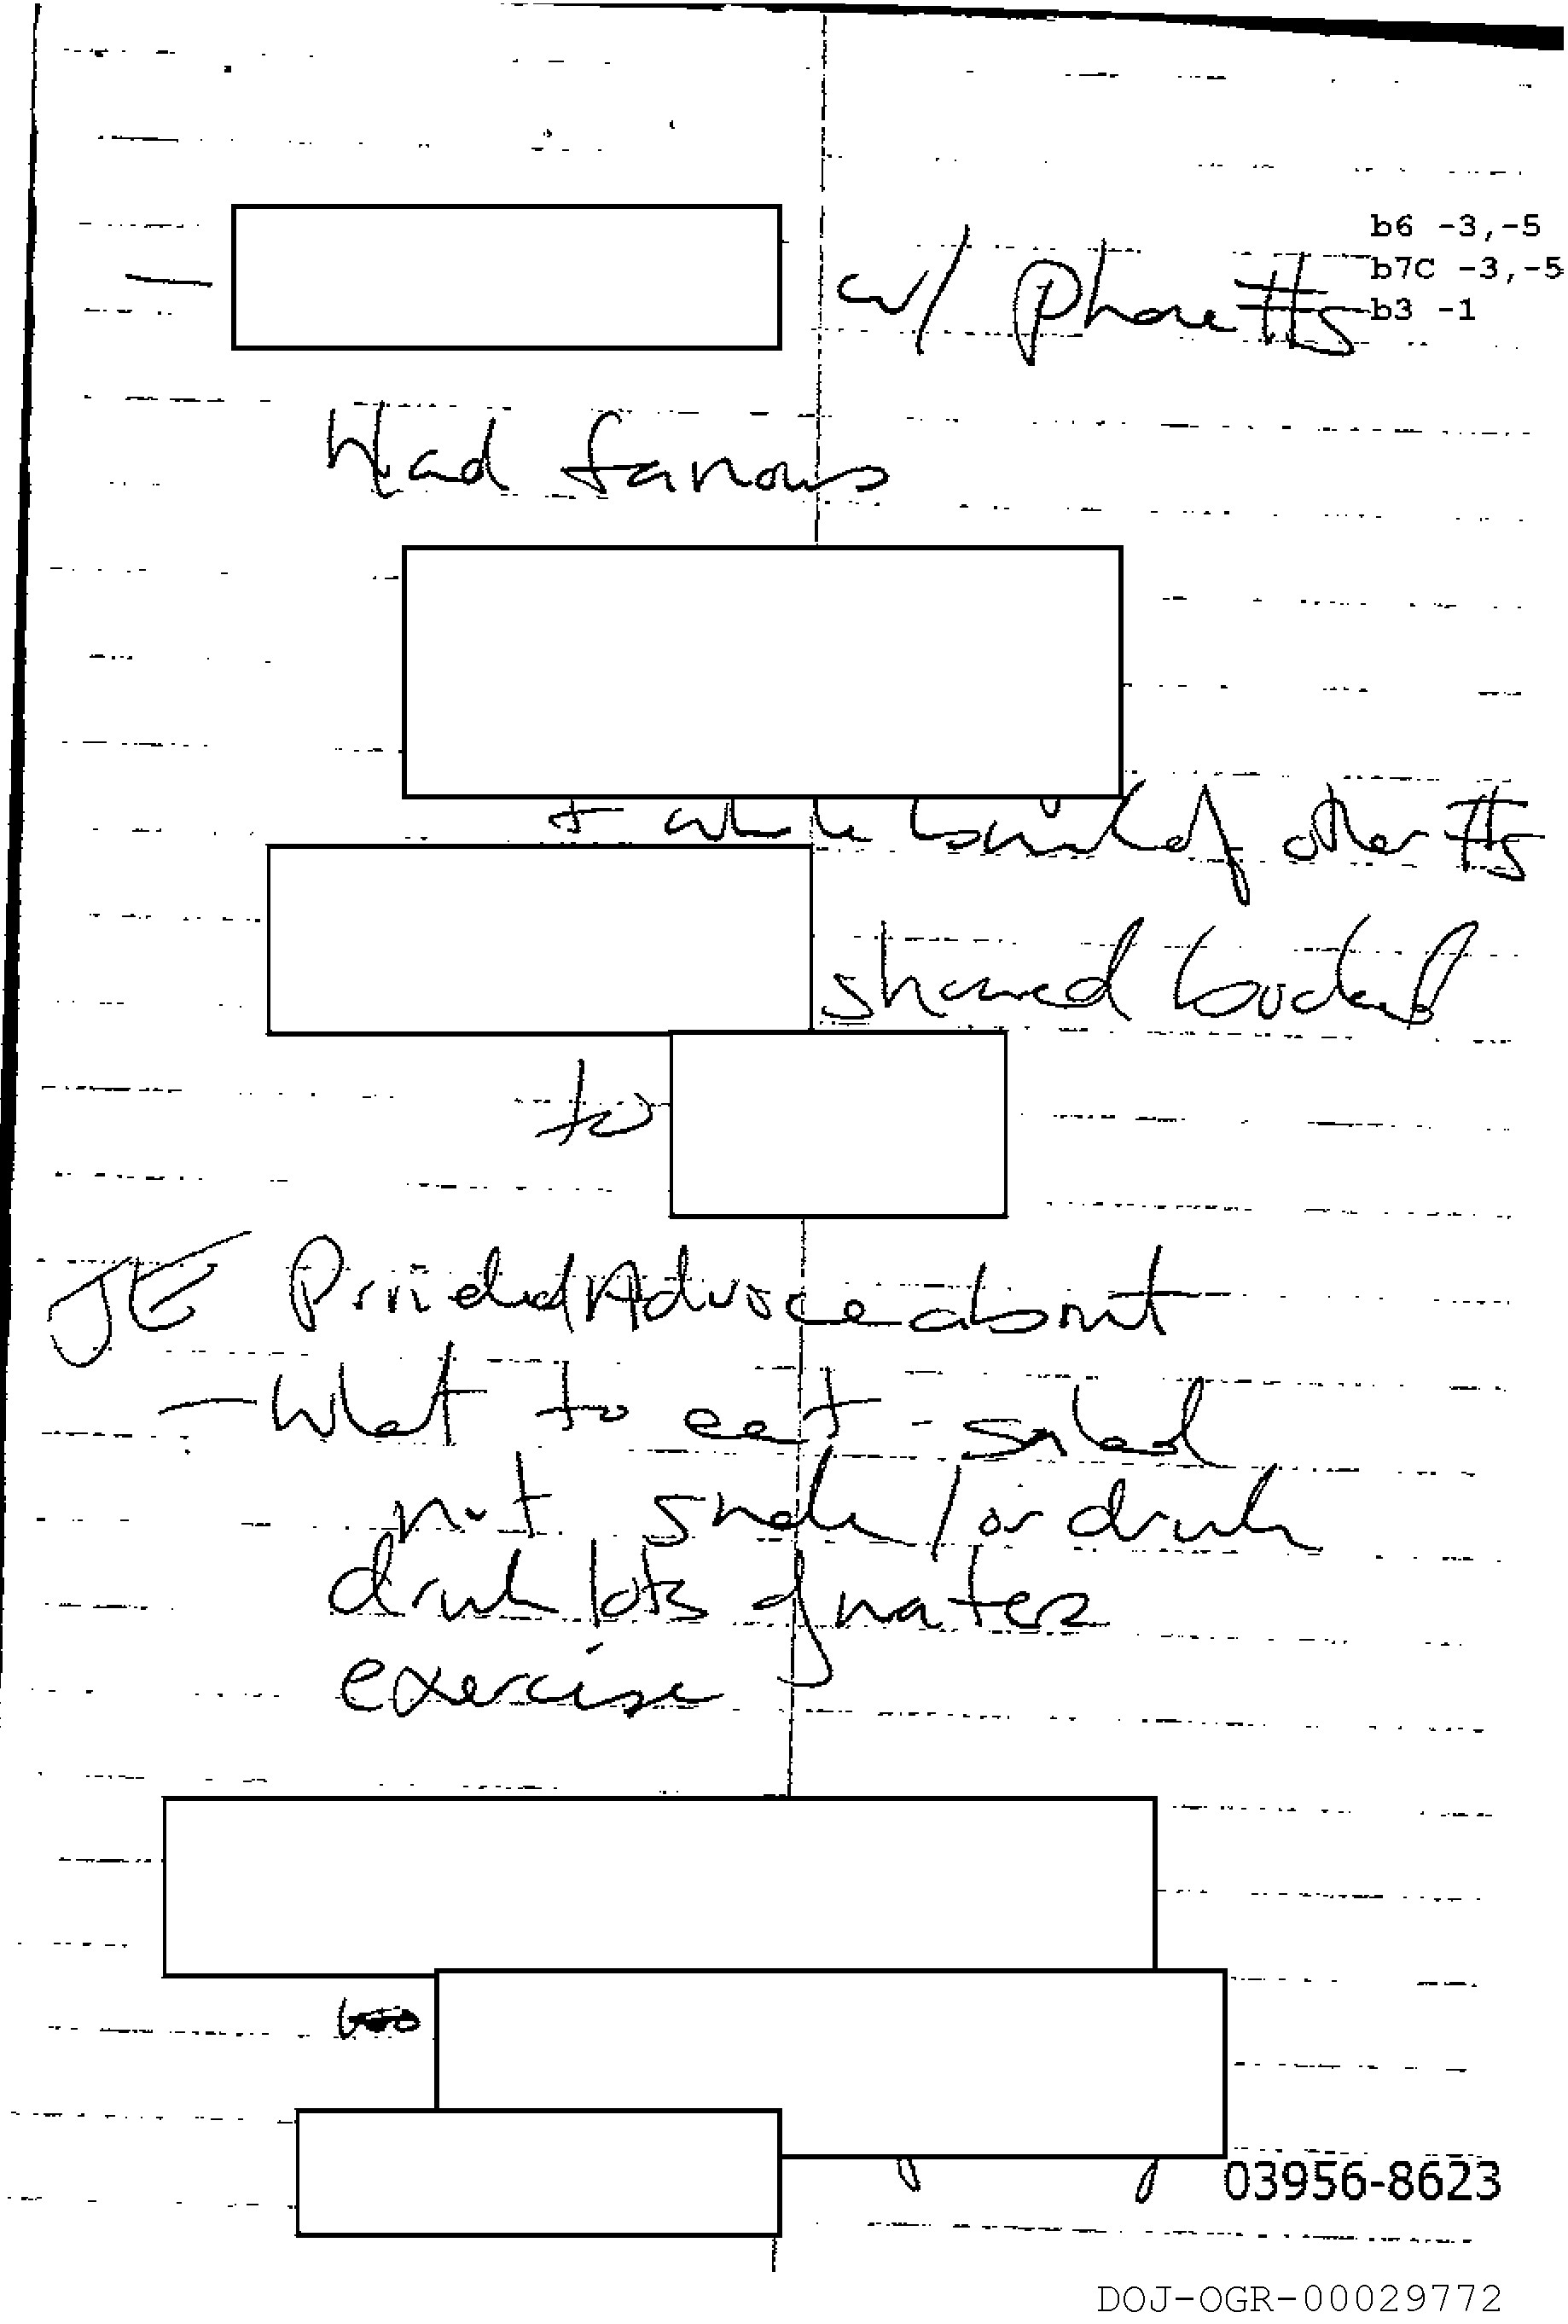 b6 -3,-5
b7C -3,-5
b3 -1
— w/ phone #s
Had famous
+ whole bunch of other #s
showed
to
JE Provided Advice about
— What to eat - salad
not smoke / or drink
drink lots of water
exercise
03956-8623
DOJ-OGR-00029772